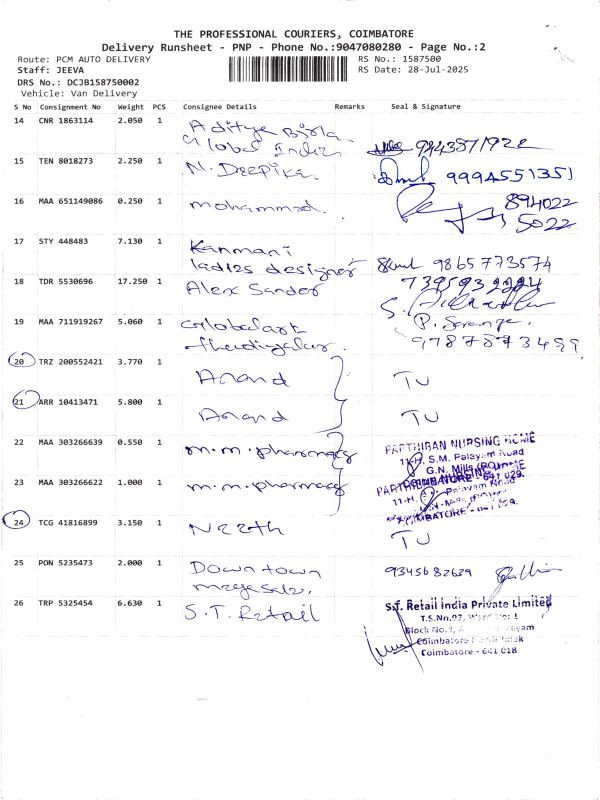 THE PROFESSIONAL COURIERS, COIMBATORE
Delivery Runsheet - PNP - Phone No.:9047080280 - Page No.:2
Route: PCM AUTO DELIVERY RS No.: 1587500
Staff: JEEVA RS Date: 28-Jul-2025
DRS No.: DCJB158750002
Vehicle: Van Delivery
S No Consignment No Weight PCS Consignee Details Remarks Seal & Signature
14 CNR 1863114 2.050 1 Aditya Birla
Global India 9443871922
15 TEN 8018273 2.250 1 N. Deepika 9994551351
16 MAA 651149086 0.250 1 mohammad. 894022
5022
17 STY 448483 7.130 1 Kanmani
ladies designer 9865773574
18 TDR 5530696 17.250 1 Alex Sander
19 MAA 711919267 5.060 1 Globalart
P.
20 TRZ 200552421 3.770 1 Anand TU
21 ARR 10413471 5.800 1 Anand TU
22 MAA 303266639 0.550 1 m.m.pharmacy PARTHIBAN NURSING HOME
11-H, S.M. Palayam Road
G.N. Mills (PO)
23 MAA 303266622 1.000 1 m.m.pharmacy COIMBATORE - 641 029.
24 TCG 41816899 3.150 1 Neeth TU
25 PON 5235473 2.000 1 Down town
megasale. 9345682629
26 TRP 5325454 6.630 1 S.T. Retail S.T. Retail India Private Limited
T.S.No.97, Ward No: 1
Block No.
Coimbatore
Coimbatore - 641 018